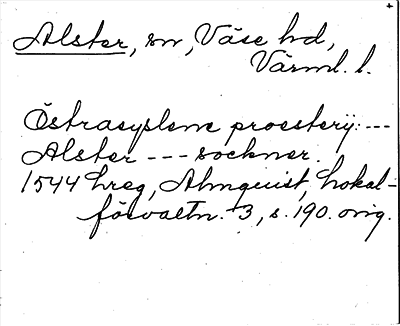 Alster, sn, Väse hd,
Värml. l.
Östrasyslene proesterij: ---
Alster --- sockner.
1544 hreg, Almquist, Lokal-
förvaltn. 3, s. 190. orig.